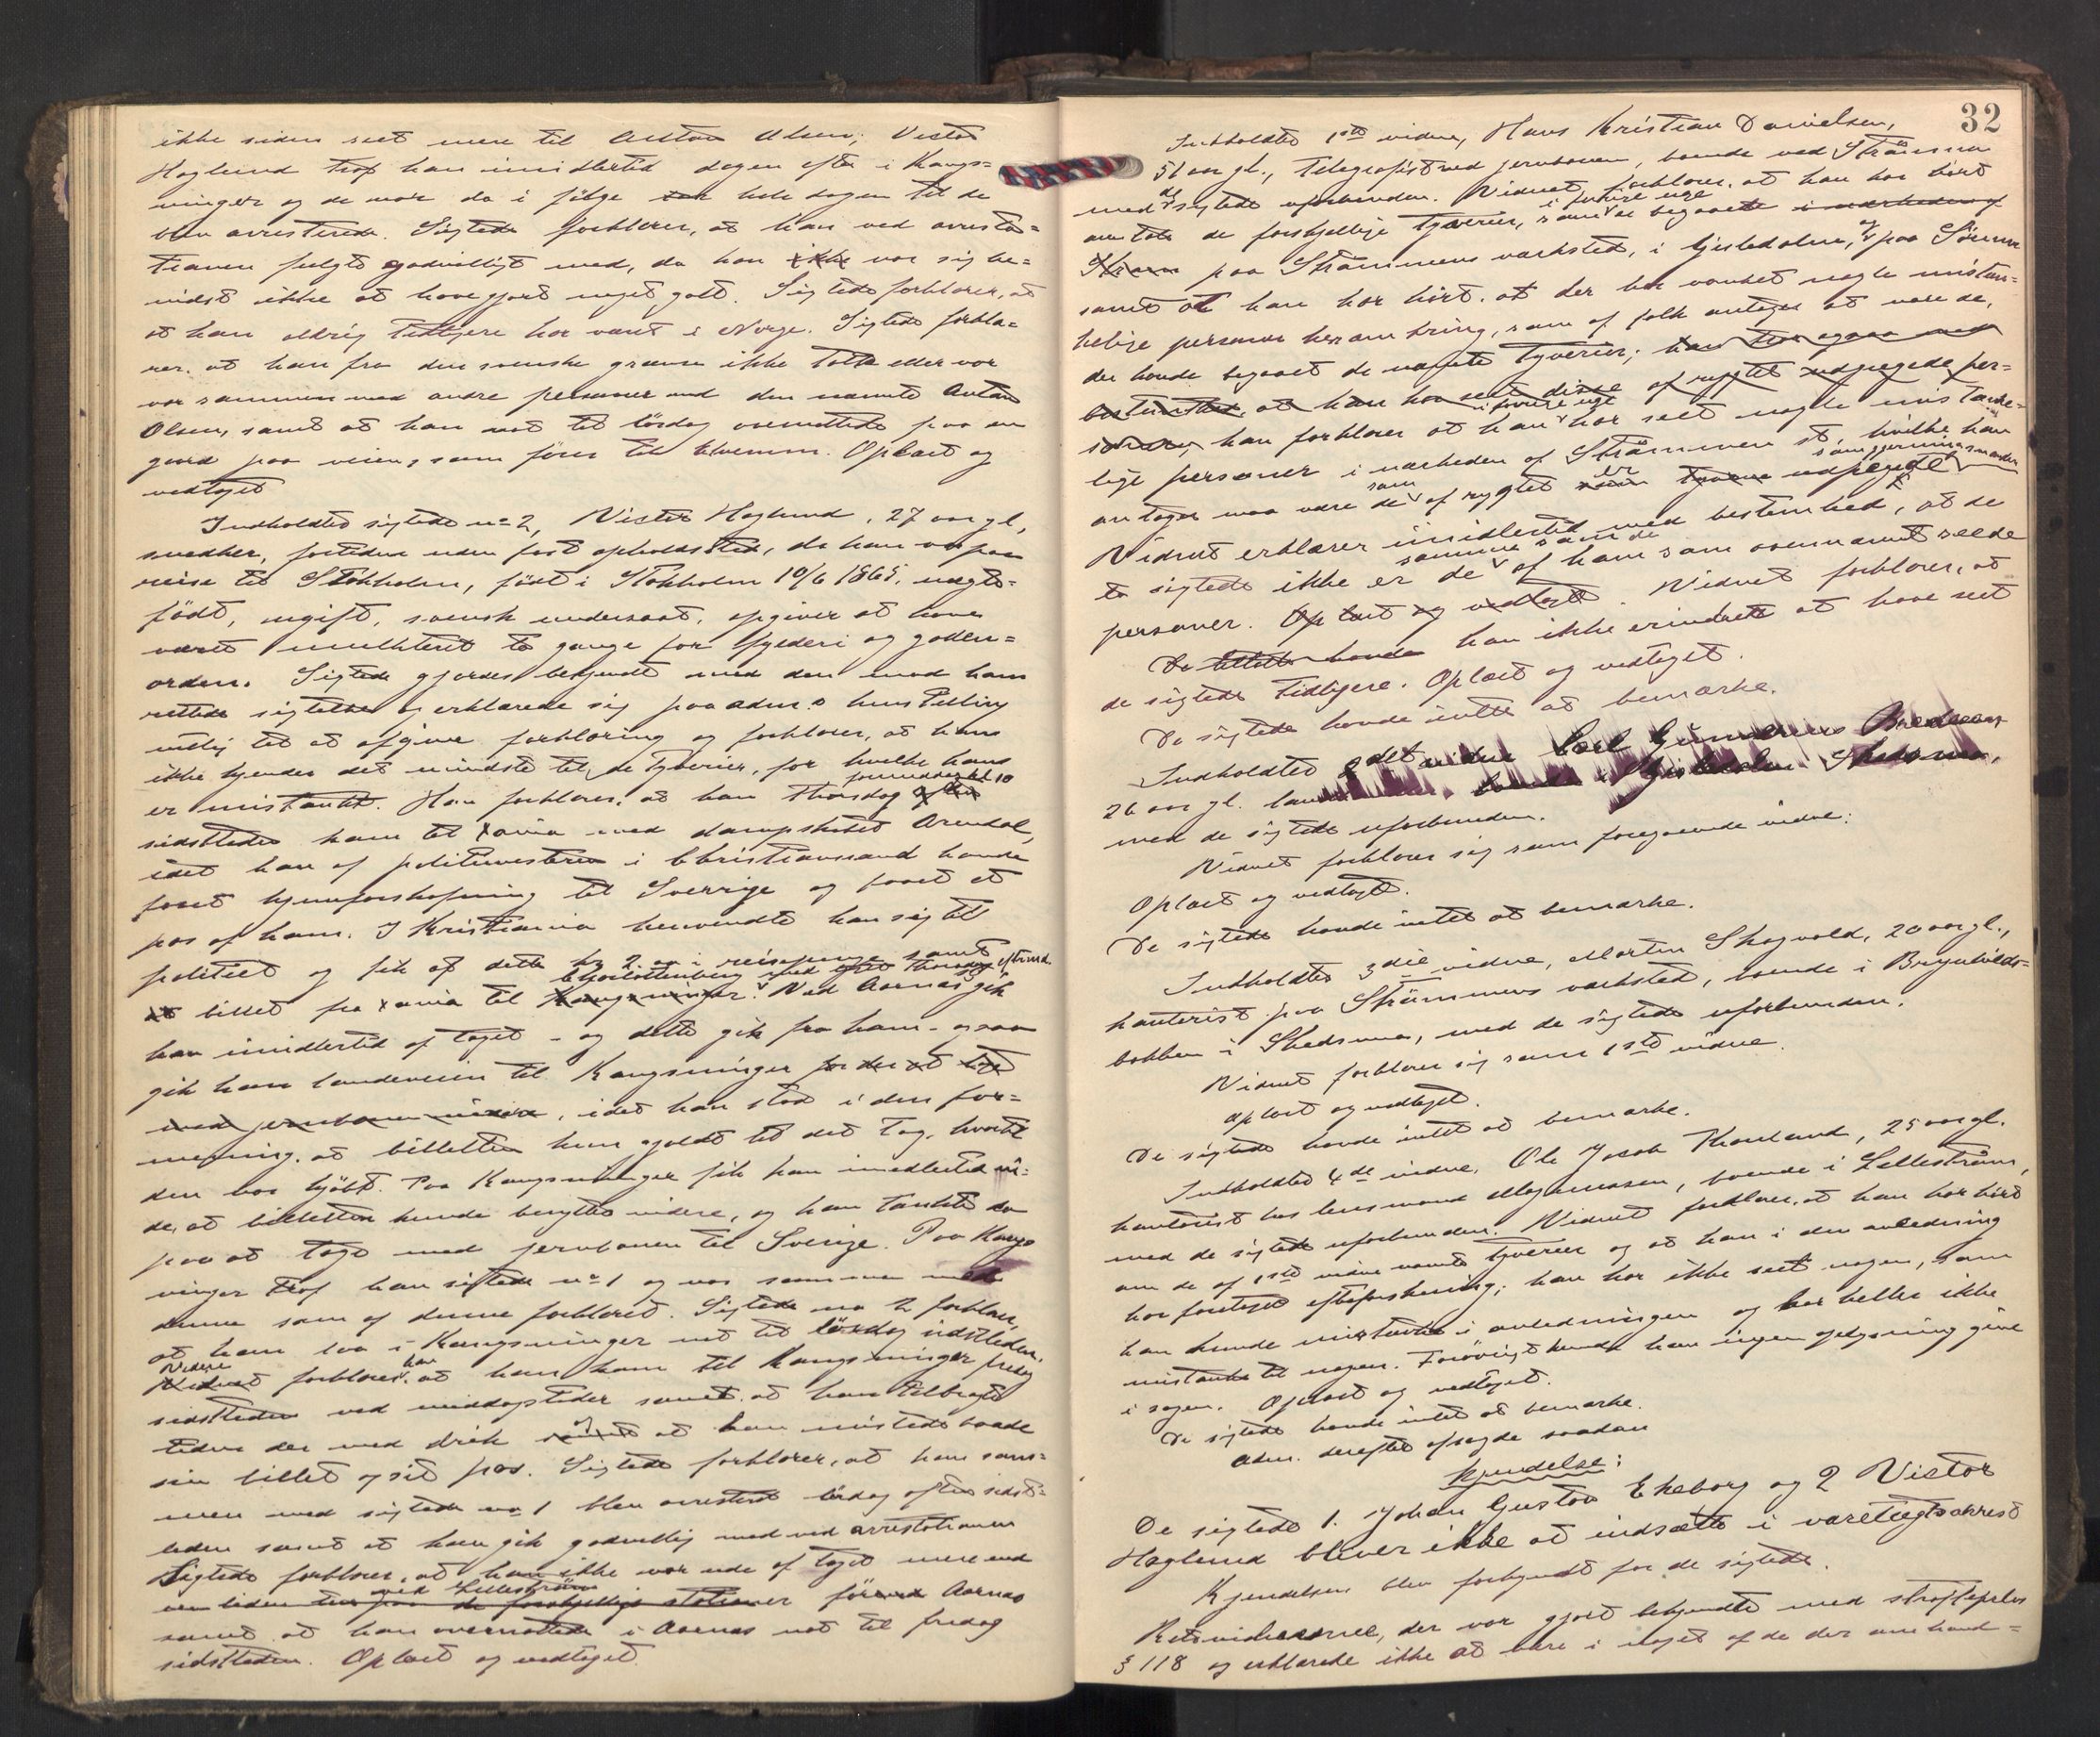 ikke siden seet mere til Anton Olsen; Victor
Haglund traf han imidlertid dagen efter i Kongs=
vinger og de var da i følge hele dagen til de
blev arresterede. Sigtede forklarer, at han ved arresta=
tionen fulgte godvilligt med, da han ikke var sig be=
vidst ikke at have gjort noget galt. Sigtede forklarer, at
at han aldrig tidligere har været i Norge. Sigtede forkla=
rer, at han fra den svenske grænse ikke talte eller var
var sammen med andre personer end den nævnte Anton
Olsen, samt at han nat til lördag overnattede paa en
gaard paa veien, som förer til Elverum. Oplæst og
vedtaget
Indkaldtes sigtede no 2, Victor Haglund, 27 aar gl,
snedker, fortiden uden fast opholdssted, da han var paa
reise til Stokholm, född i Stokholm 10/6 1865, uægte=
född, ugift, svensk undersaat, opgiver at have
været mulkteret to gange for fyderi og gadeu=
orden. Sigtede gjordes bekjendt med den mod ham
rettede sigtelse og erklærede sig paa adm.s henstilling
villig til at afgive forklaring og forklarer, at han
ikke kjender det mindste til de tyverier, for hvilke han
er mistænkt. Han forklarer, at han thorsdag formiddag kl 10
sidstleden kom til Xania med dampskibet Arendal,
idet han af politimesteren i Christianssand havde
faaet hjemforskafning til Sverrige og faaet et
pas af ham. I Kristiania henvendte han sig til
politiet og fik af dette kr 2.00 i reisepenge samt
billet fra Xania til Charlottenberg med toget thorsdag eftermd.
Ved Aarnæs gik
han imidlertid af toget - og dette gik fra ham - og saa
gik han landeveien til Kongsvinger for der at tage
med jernbanen videre, idet han stod i den for=
mening, at billetten kun gjaldt til det tog, hvortil
den var kjöbt. Paa Kongsvinger fik han imidlertid vi=
de, at billetten kunde benyttes videre, og han tænkte da
paa at tage med jernbanen til Sverige. Paa Kongs
vinger traf han sigtede no 1 og var sammen med
denne som af denne forklaret. Sigtede no 2 forklarer,
at han laa i Kongsvinger nat til lördag sidstleden.
Videre forklarer han at han kom til Kongsvinger fredag
sidstleden ved middagstider samt at han tilbragte
tiden der med drik og at han mistede baade
sin billet og sit pas. Sigtede forklarer, at han sam=
men med sigtede no 1 blev arresteret lördag aften sidst=
leden samt at han gik godvillig med ved arrestationen
Sigtede forklarer, at han ikke var ude af toget mere end
en liden tur ved Lilleström paa de forskjellige stationer för Aarnæs
samt at han overnattede i Aarnæs nat til fredag
sidstleden. Oplæst og vedtaget.
32
Indkaldtes 1ste vidne, Hans Kristian Danielsen,
51 aar gl., telegrafist ved jernbanen, boende ved Strömmen
med de sigtede uforbunden. Vidnet forklarer, at han har hört
omtale de forskjellige tyverier, som i forrige uge er begaaet i nærheden af
paa Strömmens værksted, i Gjesteböln, og paa Sörum
samt at han har hört, at der har vanket nogle mistæn=
kelige personer heromkring, som af folk antages at være de,
der havde begaaet de nævnte tyverier; han tror ogsaa med
bestemthed at han har seet disse af rygtet udpegede per=
soner, han forklarer at han i forrige uge har seet nogle mistænke=
lige personer i nærheden af Strömmen st., hvilke han
antager maa være de som af rygtet er udpegede som gjerningsmænd
Vidnet erklærer imidlertid med bestemthed, at de
to sigtede ikke er de samme som de af ham som ovennævnt seede
personer. Oplæst og vedtaget. Vidnet forklarer, at
De tiltalte havde han ikke erindrede at have seet
de sigtede tidligere. Oplæst og vedtaget.
De sigtede havde intet at bemærke.
Indkaldtes 2det vidne Carl
26 aar gl.
med de sigtede uforbunden.
Vidnet forklarer sig som foregaaende vidne.
Oplæst og vedtaget.
De sigtede havde intet at bemærke.
Indkaldtes 3die vidne, Martin Skogvold, 20 aar gl.,
kontorist paa Strömmens værksted, boende i Brynhilds=
bakken i Skedsmo, med de sigtede uforbunden.
Vidnet forklarer sig som 1ste vidne.
Oplæst og vedtaget.
De sigtede havde intet at bemærke.
Indkaldtes 4de vidne, Ole Jacob 25 aar gl.
kontorist hos lensmand Mogenssen, boende i Lilleström,
med de sigtede uforbunden. Vidnet forklarer, at han har hört
om de af 1ste vidne nævnte tyverier og at han i den anledning
har foretaget efterforskning; han har ikke seet nogen, som
han kunde mistænke i anledningen og har heller ikke
mistanke til nogen. Forövrigt kunde han ingen oplysning give
i sagen. Oplæst og vedtaget.
De sigtede havde intet at bemærke.
Adm. derefter afsagde saadan
kjendelse:
De sigtede 1. Johan Gustav Ekeborg og 2 Victor
Haglund bliver ikke at indsætte i varetægtsarrest
Kjendelsen blev forkyndt for de sigtede.
Retsvidnerne, der var gjort bekjendte med straffeprlov
§ 118 og erklærede ikke at være i noget af de der omhand=